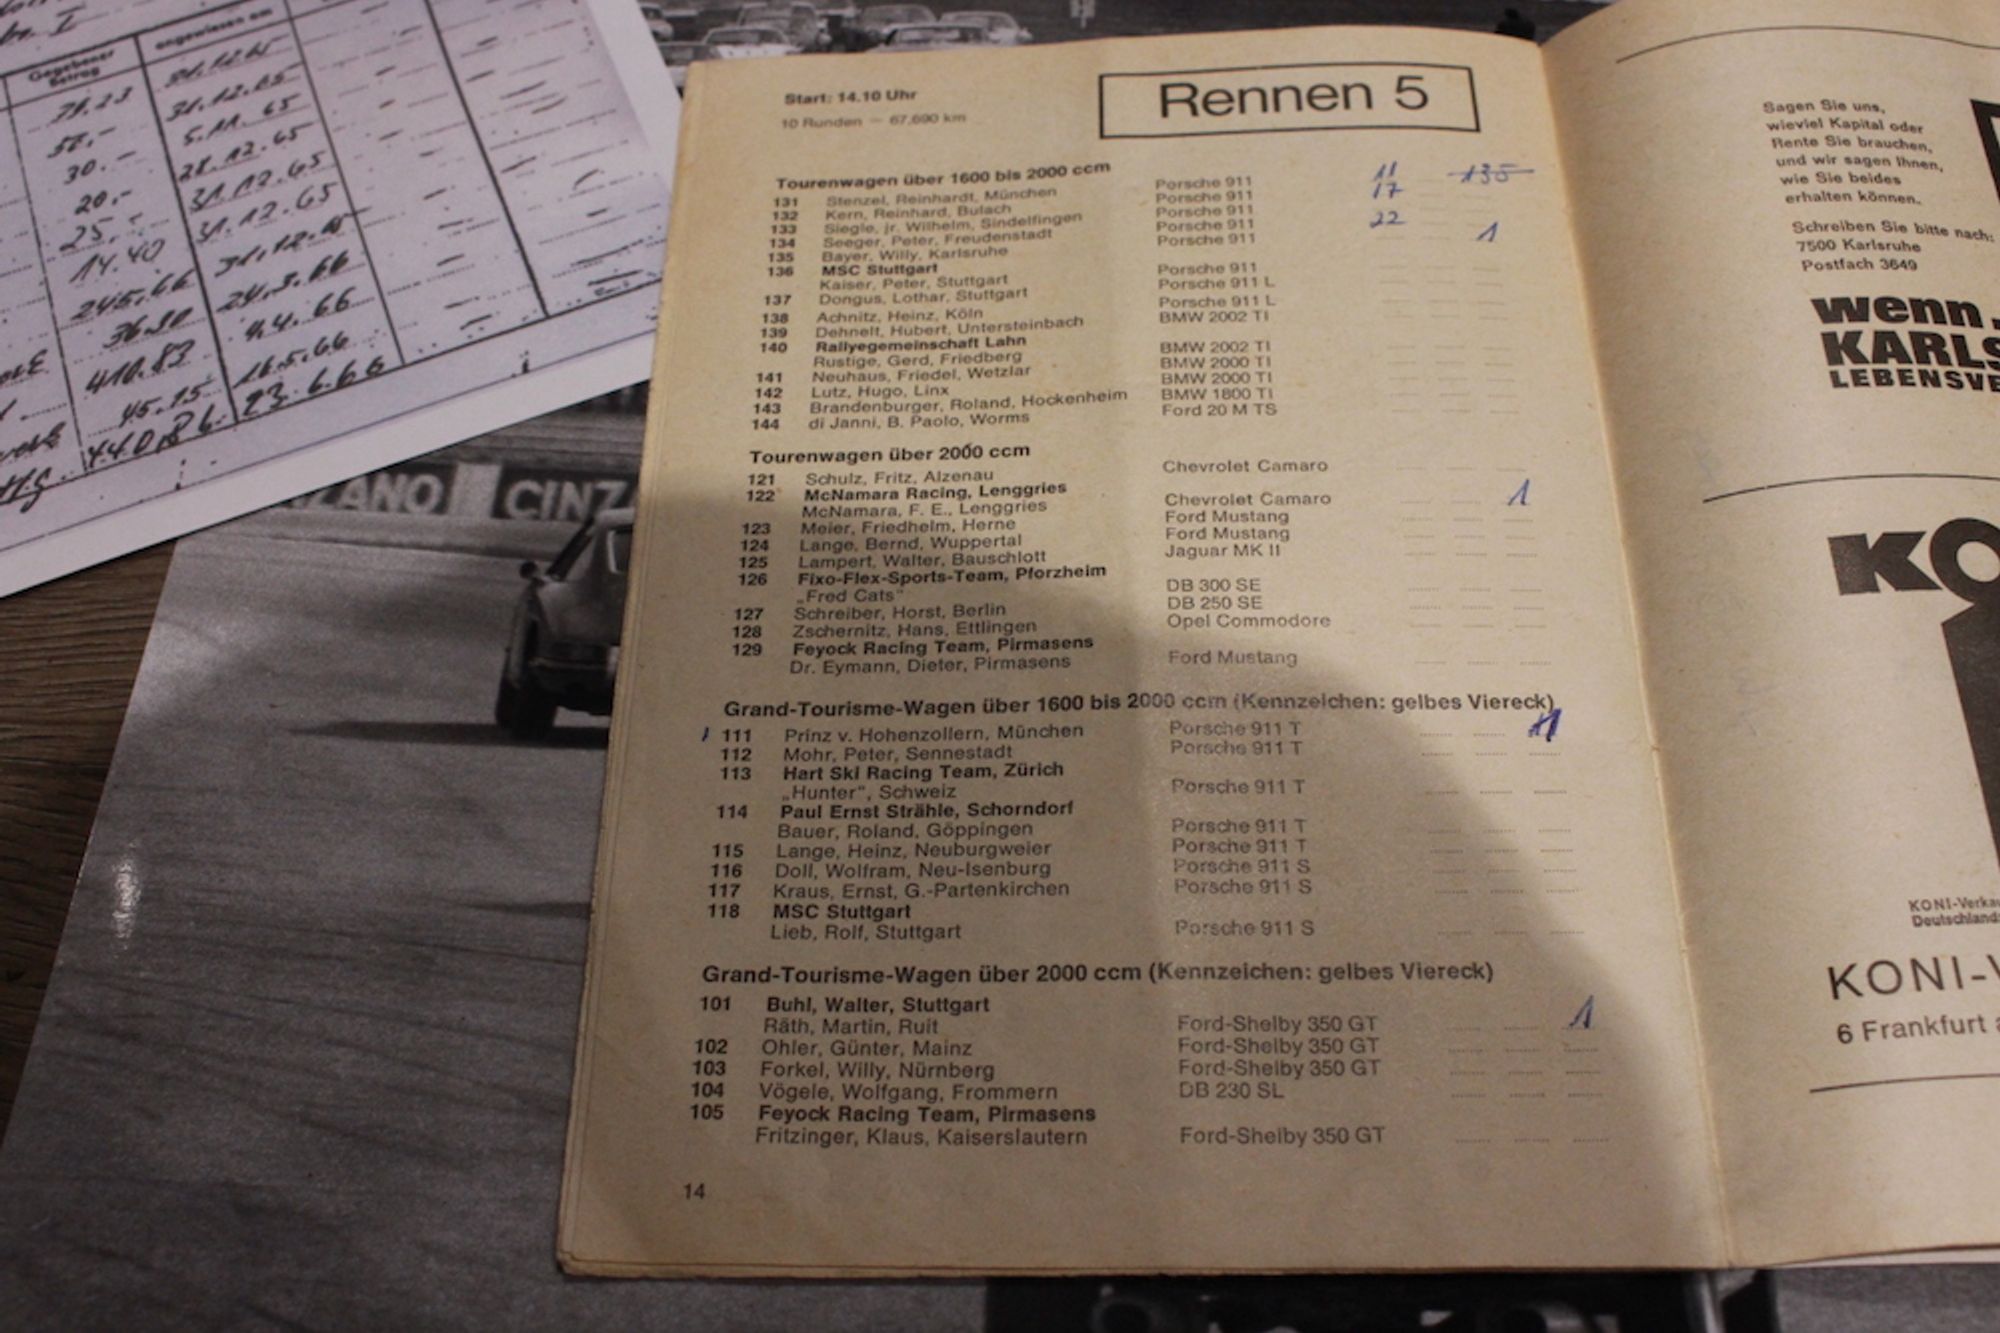 Gegebener
Betrag
angewiesen am
79.23
31.12.65
52,-
5.11.65
30.-
28.12.65
20,-
31.12.65
25,-
31.12.65
14.40
245.66
24.3.66
36.30
4.4.66
410.83
16.5.66
45.15
23.6.66
CINZANO
Start: 14.10 Uhr
Rennen 5
10 Runden — 67,690 km
Tourenwagen über 1600 bis 2000 ccm
131 Stenzel, Reinhardt, München Porsche 911 11 135
132 Kern, Reinhard, Bulach Porsche 911 17
133 Siegle, jr. Wilhelm, Sindelfingen Porsche 911
134 Seeger, Peter, Freudenstadt Porsche 911 22
135 Bayer, Willy, Karlsruhe Porsche 911 1
136 MSC Stuttgart
Kaiser, Peter, Stuttgart Porsche 911
137 Dongus, Lothar, Stuttgart Porsche 911 L
138 Achnitz, Heinz, Köln Porsche 911 L
139 Dehnelt, Hubert, Untersteinbach BMW 2002 TI
140 Rallyegemeinschaft Lahn
Rustige, Gerd, Friedberg BMW 2002 TI
141 Neuhaus, Friedel, Wetzlar BMW 2000 TI
142 Lutz, Hugo, Linx BMW 2000 TI
143 Brandenburger, Roland, Hockenheim BMW 1800 TI
144 di Janni, B. Paolo, Worms Ford 20 M TS
Tourenwagen über 2000 ccm
121 Schulz, Fritz, Alzenau Chevrolet Camaro
122 McNamara Racing, Lenggries
McNamara, F. E., Lenggries Chevrolet Camaro 1
123 Meier, Friedhelm, Herne Ford Mustang
124 Lange, Bernd, Wuppertal Ford Mustang
125 Lampert, Walter, Bauschlott Jaguar MK II
126 Fixo-Flex-Sports-Team, Pforzheim
„Fred Cats" DB 300 SE
127 Schreiber, Horst, Berlin DB 250 SE
128 Zschernitz, Hans, Ettlingen Opel Commodore
129 Feyock Racing Team, Pirmasens
Dr. Eymann, Dieter, Pirmasens Ford Mustang
Grand-Tourisme-Wagen über 1600 bis 2000 ccm (Kennzeichen: gelbes Viereck)
111 Prinz v. Hohenzollern, München Porsche 911 T
112 Mohr, Peter, Sennestadt Porsche 911 T
113 Hart Ski Racing Team, Zürich
„Hunter", Schweiz Porsche 911 T
114 Paul Ernst Strähle, Schorndorf
Bauer, Roland, Göppingen Porsche 911 T
115 Lange, Heinz, Neuburgweier Porsche 911 T
116 Doll, Wolfram, Neu-Isenburg Porsche 911 S
117 Kraus, Ernst, G.-Partenkirchen Porsche 911 S
118 MSC Stuttgart
Lieb, Rolf, Stuttgart Porsche 911 S
Grand-Tourisme-Wagen über 2000 ccm (Kennzeichen: gelbes Viereck)
101 Buhl, Walter, Stuttgart
Räth, Martin, Ruit Ford-Shelby 350 GT 1
102 Ohler, Günter, Mainz Ford-Shelby 350 GT
103 Forkel, Willy, Nürnberg Ford-Shelby 350 GT
104 Vögele, Wolfgang, Frommern DB 230 SL
105 Feyock Racing Team, Pirmasens
Fritzinger, Klaus, Kaiserslautern Ford-Shelby 350 GT
14
Sagen Sie uns,
wieviel Kapital oder
Rente Sie brauchen,
und wir sagen Ihnen,
wie Sie beides
erhalten können.
Schreiben Sie bitte nach:
7500 Karlsruhe
Postfach 3649
wenn
KARLS
LEBENSVE
KO
KONI-Verka
Deutschland
KONI-V
6 Frankfurt a